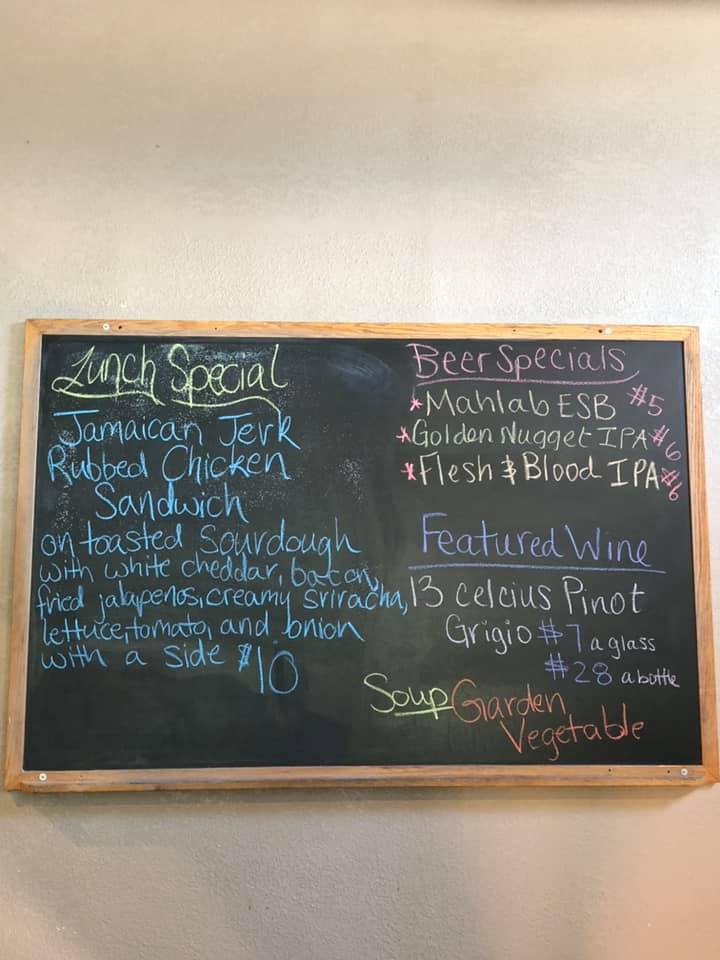 Lunch Special
Jamaican Jerk
Rubbed Chicken
Sandwich
on toasted Sourdough
with white cheddar, bacon,
fried jalapenos, creamy sriracha,
lettuce, tomato, and onion
with a side $10
Beer Specials
*Mahlab ESB $5
*Golden Nugget IPA $6
*Flesh & Blood IPA $6
Featured Wine
13 celcius Pinot
Grigio $7 a glass
$28 a bottle
Soup Garden
Vegetable